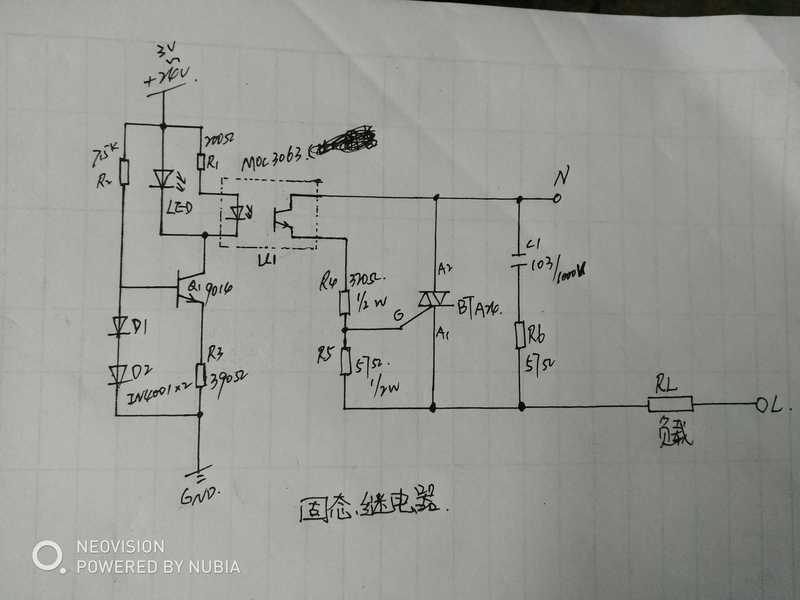 3V
+24V.
7.5K
R2
200Ω
R1
MOC3063
LED
U1
Q1
9014
D1
D2
IN4001×2
R3
390Ω
GND.
R4
330Ω
1/2W
R5
57Ω
1/2W
G
A2
A1
BTA24
N
C1
103/1000V
R6
57Ω
RL
负载
L.
固态继电器.
NEOVISION
POWERED BY NUBIA